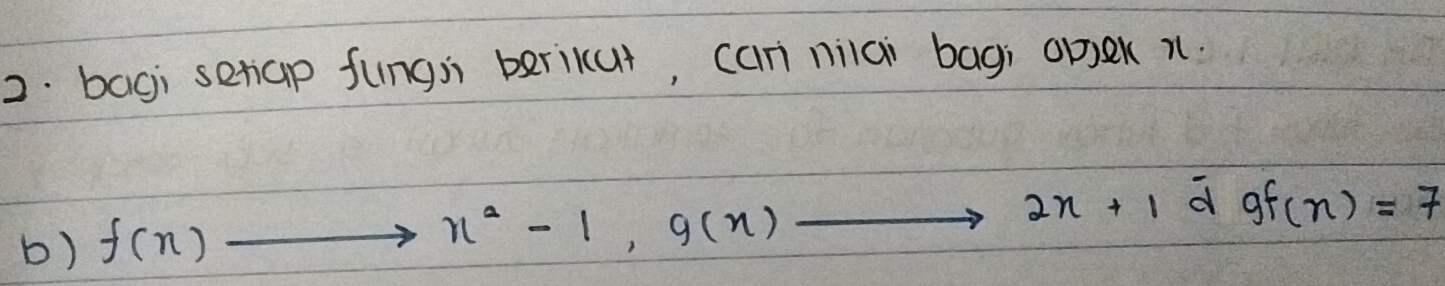 2. bagi setiap fungsi berikut, cari nilai bagi objek x.
b) f(x) ⟶ x² - 1, g(x) ⟶ 2x + 1 d̄ gf(x) = 7